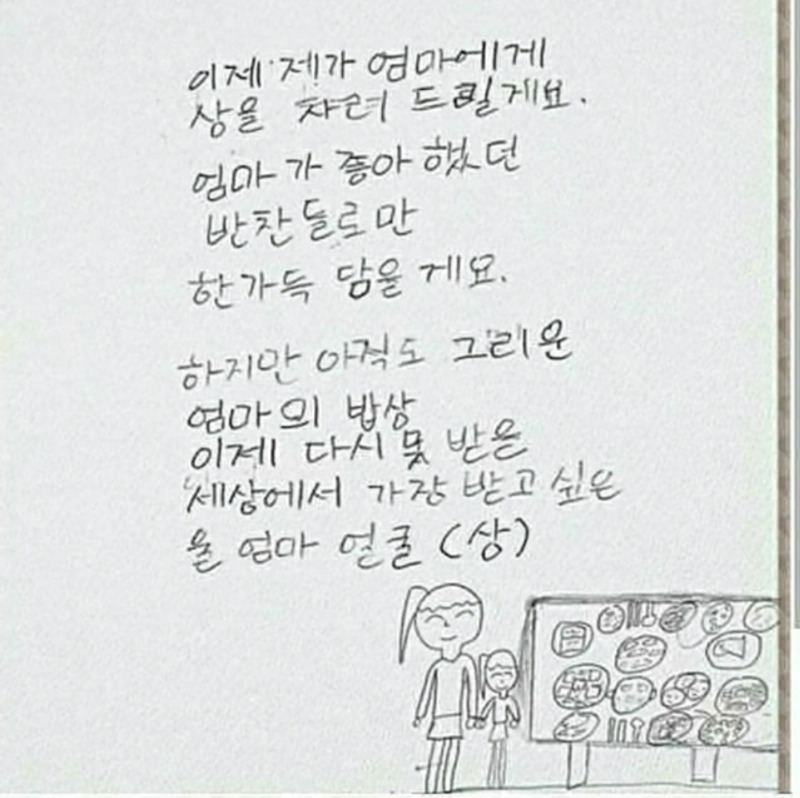 이제 제가 엄마에게
상을 차려 드릴게요.
엄마가 좋아했던
반찬들로만
한가득 담을게요.
하지만 아직도 그리운
엄마의 밥상
이제 다시 못 받을
세상에서 가장 받고 싶은
울 엄마 얼굴 (상)